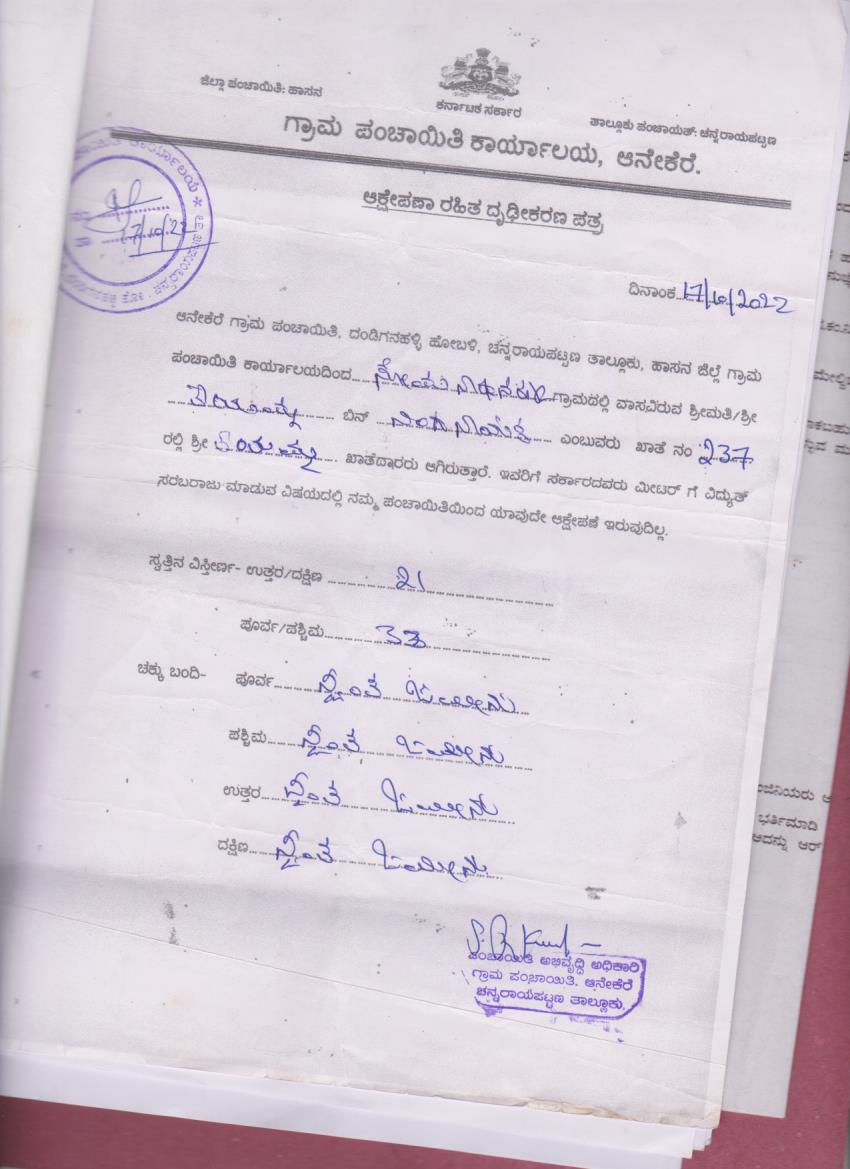 ಜಿಲ್ಲಾ ಪಂಚಾಯಿತಿ: ಹಾಸನ
ಕರ್ನಾಟಕ ಸರ್ಕಾರ
ತಾಲ್ಲೂಕು ಪಂಚಾಯತ್: ಚನ್ನರಾಯಪಟ್ಟಣ
ಗ್ರಾಮ ಪಂಚಾಯಿತಿ ಕಾರ್ಯಾಲಯ, ಆನೇಕೆರೆ.
ಆಕ್ಷೇಪಣಾ ರಹಿತ ದೃಢೀಕರಣ ಪತ್ರ
17.10.22
ದಿನಾಂಕ 17/10/2022
ಆನೇಕೆರೆ ಗ್ರಾಮ ಪಂಚಾಯಿತಿ, ದಂಡಿಗನಹಳ್ಳಿ ಹೋಬಳಿ, ಚನ್ನರಾಯಪಟ್ಟಣ ತಾಲ್ಲೂಕು, ಹಾಸನ ಜಿಲ್ಲೆ ಗ್ರಾಮ
ಪಂಚಾಯಿತಿ ಕಾರ್ಯಾಲಯದಿಂದ ಗ್ರಾಮದಲ್ಲಿ ವಾಸವಿರುವ ಶ್ರೀಮತಿ/ಶ್ರೀ
ಬಿನ್ ಎಂಬುವರು ಖಾತೆ ನಂ 237
ರಲ್ಲಿ ಶ್ರೀ ಖಾತೆದಾರರು ಆಗಿರುತ್ತಾರೆ. ಇವರಿಗೆ ಸರ್ಕಾರದವರು ಮೀಟರ್ ಗೆ ವಿದ್ಯುತ್
ಸರಬರಾಜು ಮಾಡುವ ವಿಷಯದಲ್ಲಿ ನಮ್ಮ ಪಂಚಾಯಿತಿಯಿಂದ ಯಾವುದೇ ಆಕ್ಷೇಪಣೆ ಇರುವುದಿಲ್ಲ.
ಸ್ವತ್ತಿನ ವಿಸ್ತೀರ್ಣ- ಉತ್ತರ/ದಕ್ಷಿಣ 21
ಪೂರ್ವ/ಪಶ್ಚಿಮ 33
ಚಕ್ಕು ಬಂದಿ- ಪೂರ್ವ ಸ್ವಂತ ಜಮೀನು
ಪಶ್ಚಿಮ ಸ್ವಂತ ಜಮೀನು
ಉತ್ತರ ಸ್ವಂತ ಜಮೀನು
ದಕ್ಷಿಣ ಸ್ವಂತ ಜಮೀನು
ಪಂಚಾಯಿತಿ ಅಭಿವೃದ್ಧಿ ಅಧಿಕಾರಿ
ಗ್ರಾಮ ಪಂಚಾಯಿತಿ. ಆನೇಕೆರೆ
ಚನ್ನರಾಯಪಟ್ಟಣ ತಾಲ್ಲೂಕು.